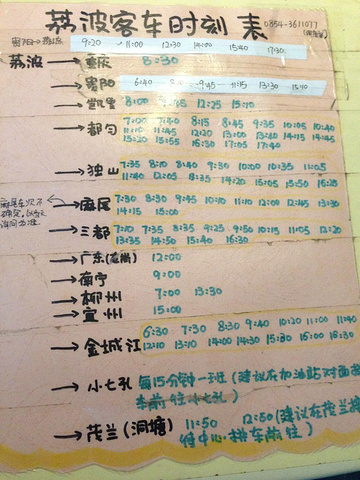 荔波客车时刻表 0854-3611077
贵阳→荔波 9:20 11:00 12:30 14:00 15:40 17:30
荔波→重庆 8:30
→贵阳 6:40 9:45 11:15 13:30 15:10
→凯里 8:00 12:25 15:10
→都匀 7:00 7:40 8:15 8:45 9:35 10:05 10:40
11:10 11:45 12:20 13:00 13:40 14:15 14:45
15:20 15:55 16:30 17:05 17:40
→独山 7:35 8:10 8:40 9:30 10:00 10:35 11:05
11:40 12:05 14:20 15:05 15:50 16:25
→麻尾 7:30 8:30 9:45 10:10 11:10 12:00 12:45 13:30
14:15 15:00
→三都 7:10 7:35 8:35 9:25 9:50 10:15 11:05 12:20
13:35 14:50 15:40 16:30
→广东 12:00
→南宁 9:00
→柳州 7:00 13:30
→宜州 15:00
→金城江 6:30 7:30 8:30 9:40 10:20 11:00 11:40
12:10 13:10 14:00 14:30 15:30 16:00 16:30
→小七孔 每15分钟一班(建议在加油站对面
乘前往小七孔)
→茂兰(洞塘) 11:50 12:50(建议在茂兰
中心·拼车前往)